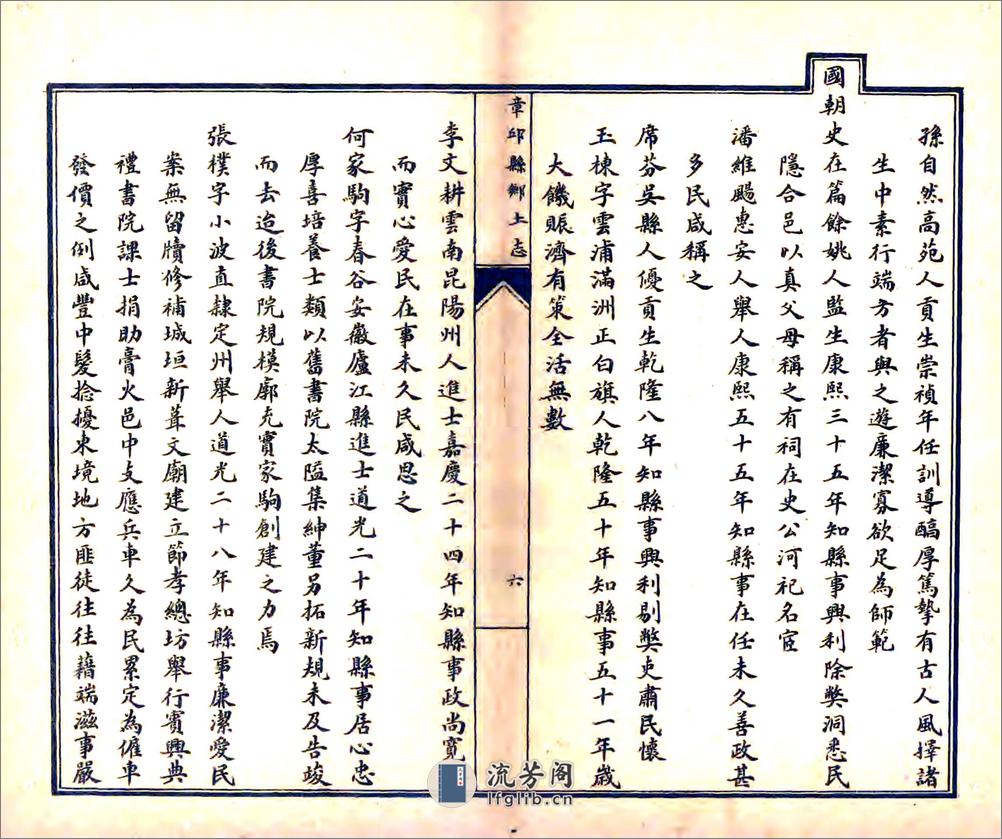 孫自然高苑人貢生崇禎年任訓導醕厚篤摯有古人風擇諸
生中素行端方者與之遊廉潔寡欲足為師範
國朝史在篇餘姚人監生康熙三十五年知縣事興利除獘洞悉民
隱合邑以真父母稱之有祠在史公河祀名宦
潘維颺惠安人舉人康熙五十五年知縣事在任未久善政甚
多民咸稱之
席芬吳縣人優貢生乾隆八年知縣事興利剔獘吏肅民懷
玉棟字雲浦滿洲正白旗人乾隆五十年知縣事五十一年歲
大饑賑濟有策全活無數
章邱縣鄉土志
六
李文耕雲南昆陽州人進士嘉慶二十四年知縣事政尚寬
而實心愛民在事未久民咸思之
何家駒字春谷安徽廬江縣進士道光二十年知縣事居心忠
厚喜培養士類以舊書院太隘集紳董另拓新規未及告竣
而去迨後書院規模廓充實家駒創建之力焉
張樸字小波直隸定州舉人道光二十八年知縣事廉潔愛民
案無留牘修補城垣新葺文廟建立節孝總坊舉行賓興典
禮書院課士捐助膏火邑中支應兵車久為民累定為僱車
發價之例咸豐中髮捻擾東境地方匪徒往往藉端滋事嚴
流芳阁
lfglib.cn